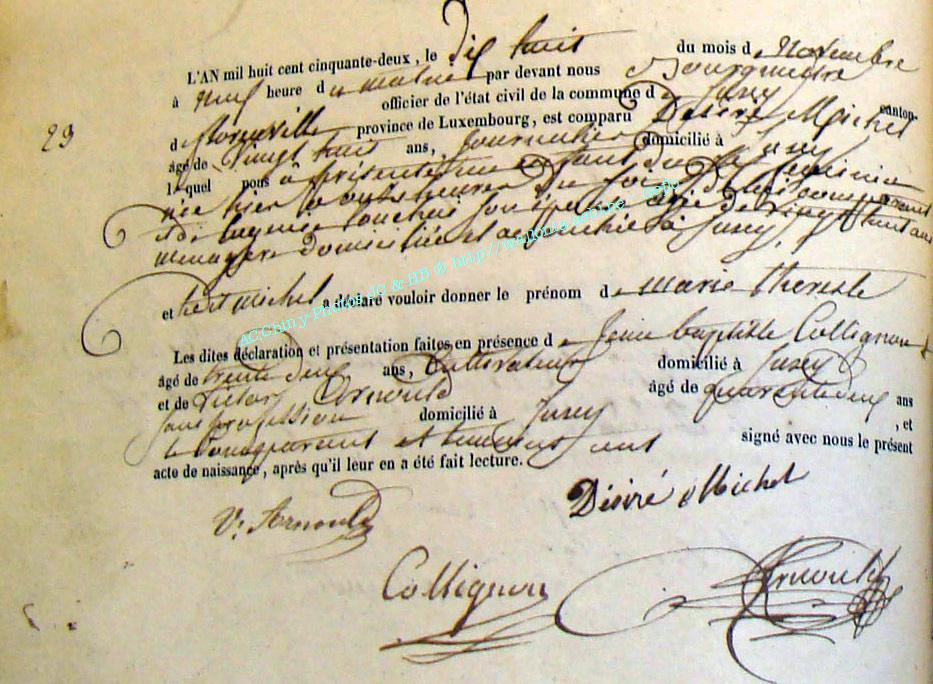 L'AN mil huit cent cinquante-deux, le dix huit du mois de Novembre
à neuf heure du matin par devant nous Bourgmestre
officier de l'état civil de la commune de Jusey canton
de Florenville province de Luxembourg, est comparu Désiré Michel
âgé de vingt huit ans, Journalier domicilié à Jusey
lequel nous a présenté un enfant du féminin
née hier à onze heures du soir, de lui comparant
et de son épouse âgée de vingt huit ans
ménagère domiciliée et à Jusey,
et ledit michel a déclaré vouloir donner le prénom de marie therese
Les dites déclaration et présentation faites en présence de Jean baptiste Collignon
âgé de trente deux ans, Cultivateur domicilié à Jusey
et de Victor Arnould âgé de quarante deux ans
sans profession domicilié à Jusey, et
le Comparant et temoins ont signé avec nous le présent
acte de naissance, après qu'il leur en a été fait lecture.
29
V. Arnould
Désiré Michel
Collignon
Arnould
AC Chiny-Photos JG & HB © http//